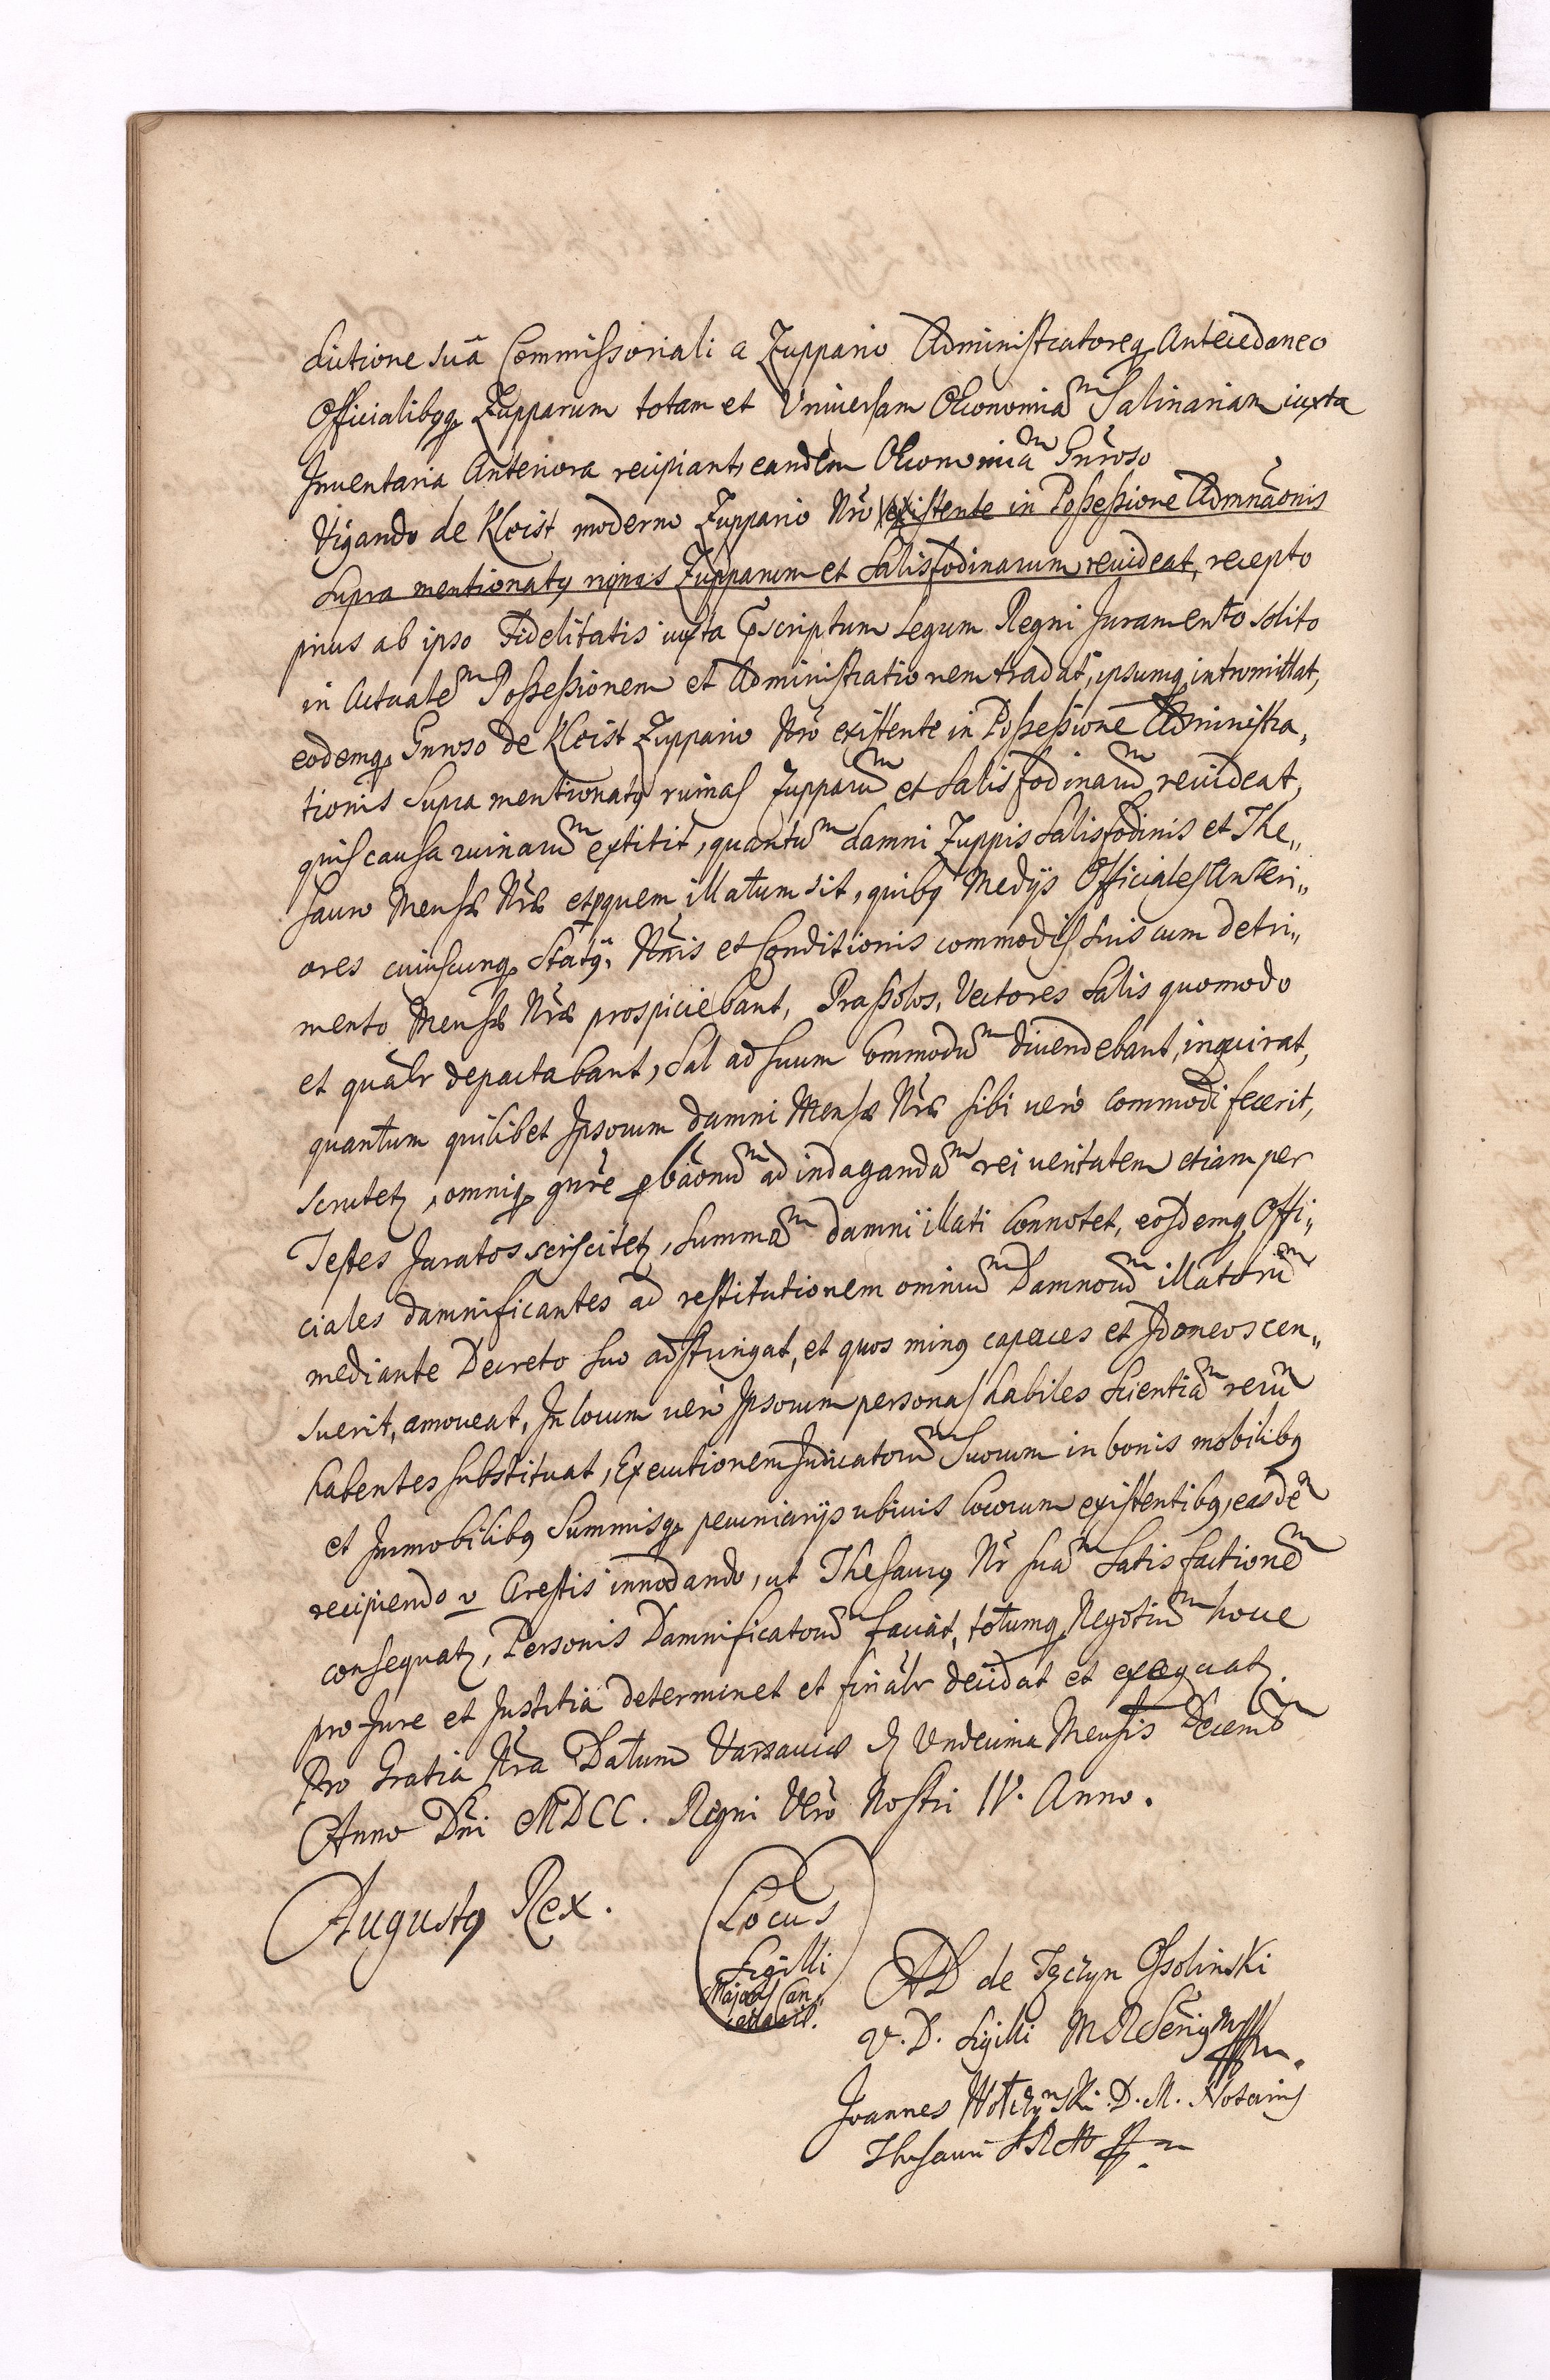 dictione suâ Commissoriali a Zuppario Administratoreq Antecedaneo
Officialibqq Zupparum totam et Universam Oeconomiam Salinariam iuxta
Inventaria Anteriora recipiant, eandem Oeconomiam Gnroso
Vigando de Kleist moderno Zuppario Nro existente in Possessione Admnãonis
supra mentionatq ruinas Zupparum et Salisfodinarum revideat, recepto
prius ab ipso Fidelitatis iuxta Pscriptum Legum Regni Juramento solito
in Actualem Possessionem et Administrationem tradat, ipsumq intromittat,
eodemq Gnroso de Kleist Zuppario Nro existente in Possessione Administra,,
tionis supra mentionatq ruinas Zupparum et Salisfodinarum revideat,
quis causa ruinarum extitit, quantum damni Zuppis Salisfodinis et The,,
sauro Mensæ Nræ et pquem illatum sit, quibq Medijs Officiales Anteri,,
ores cuiuscunq Statq, Nnis et Conditionis commodis suis cum detri,,
mento Mensæ Nræ prospiciebant, Prasolos, Vectores Salis quomodo
et qualr depactabant, Sal ad suum Commodum divendebant, inquirat,
quantum quilibet Ipsorum damni Mensæ Nræ sibi vero commodi fecerit,
scrutetz, omniq gnre pbãonum ad indagandam rei veritatem etiam per
Testes Juratos sciscitetz, summam damni illati Connotet, eosdemq Offi,,
ciales damnificantes ad restitutionem omnium Damnorum illatorum
mediante Decreto suo adstringat, et quos minq capaces et Idoneos cen,,
suerit, amoveat, In locum vero Ipsorum personas habiles scientiam rerum
habentes substituat, Executionem Judicatorum Suorum in bonis mobilibq
et Immobilibq Summisq pecuniarijs ubivis locorum existentibq, easdem
recipiendo v Arestis innodando, ut Thesaurq Nr suam Satisfactionem
consequatz, Personis Damnificatorum faciat, totumq Negotium hocce
pro Jure et Justitia determinet et finalr decidat et exequatz.
Pro Gratia Nra Datum Varsaviæ D Undecima Mensis Decemb
Anno Dni MDCC. Regni Vero Nostri IV. Anno.
Augustq Rex.
Locus
Sigilli
Majoris Can,,
cellariæ.
AD de Tęczyn Ossolinski
V. D. Sigilli
Joannes Wolczynski D. M. Notarius
Thesauri